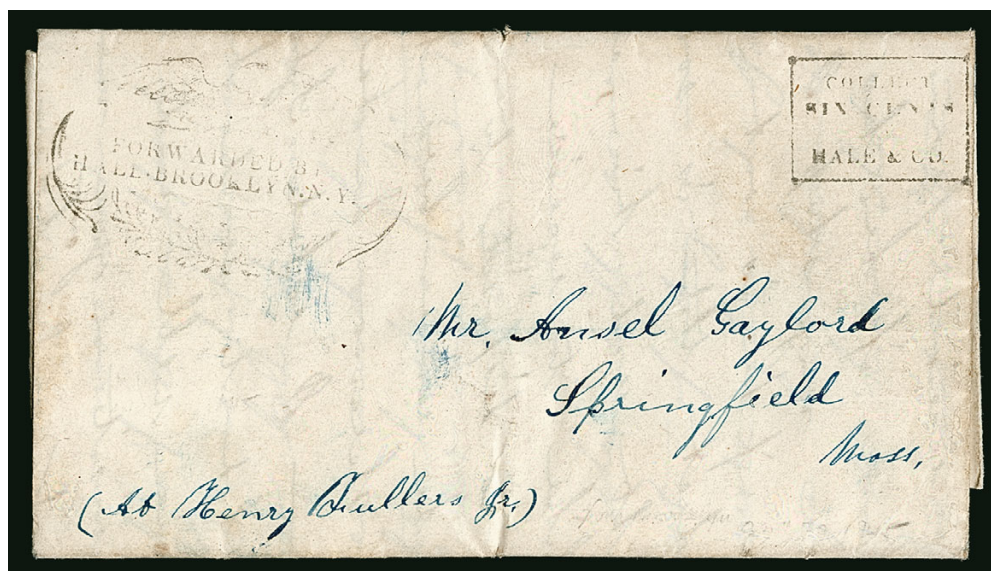 FORWARDED BY
HALL. BROOKLYN. N. Y.
COLLECT
SIX CENTS
HALE & CO.
Mr. Ansel Gaylord
Springfield
Mass.
(At Henry Fullers Jr.)
1845